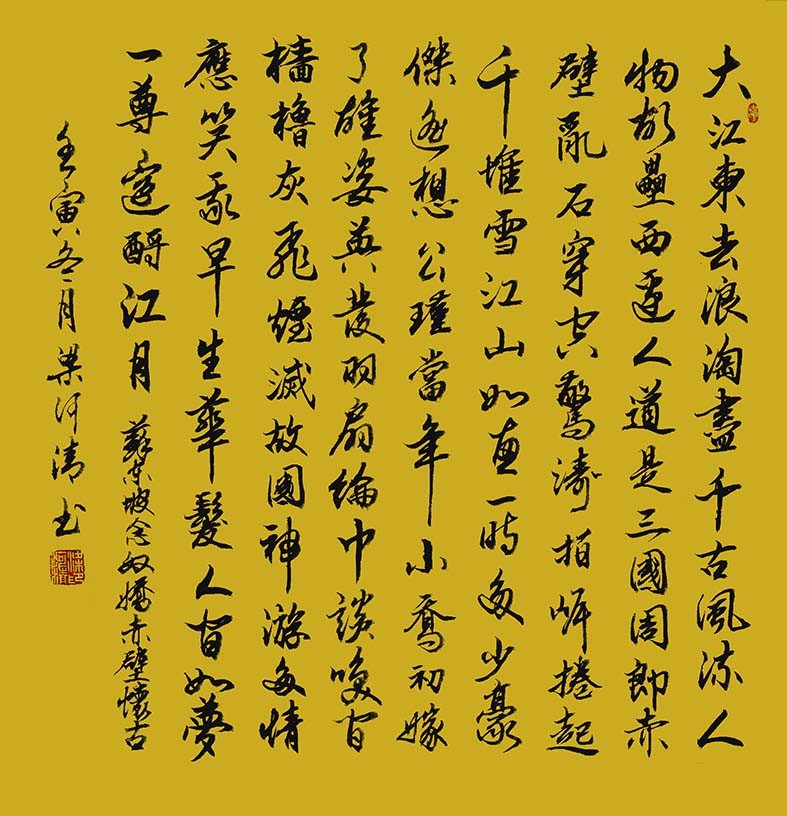 大江東去浪淘盡千古風流人
物故壘西邊人道是三國周郎赤
壁亂石穿空驚濤拍岸捲起
千堆雪江山如畫一時多少豪
傑遙想公瑾當年小喬初嫁
了雄姿英發羽扇綸巾談咲間
檣櫓灰飛煙滅故國神游多情
應笑我早生華髮人間如夢
一尊還酹江月 蘇東坡念奴嬌赤壁懷古
壬寅冬月梁河清书